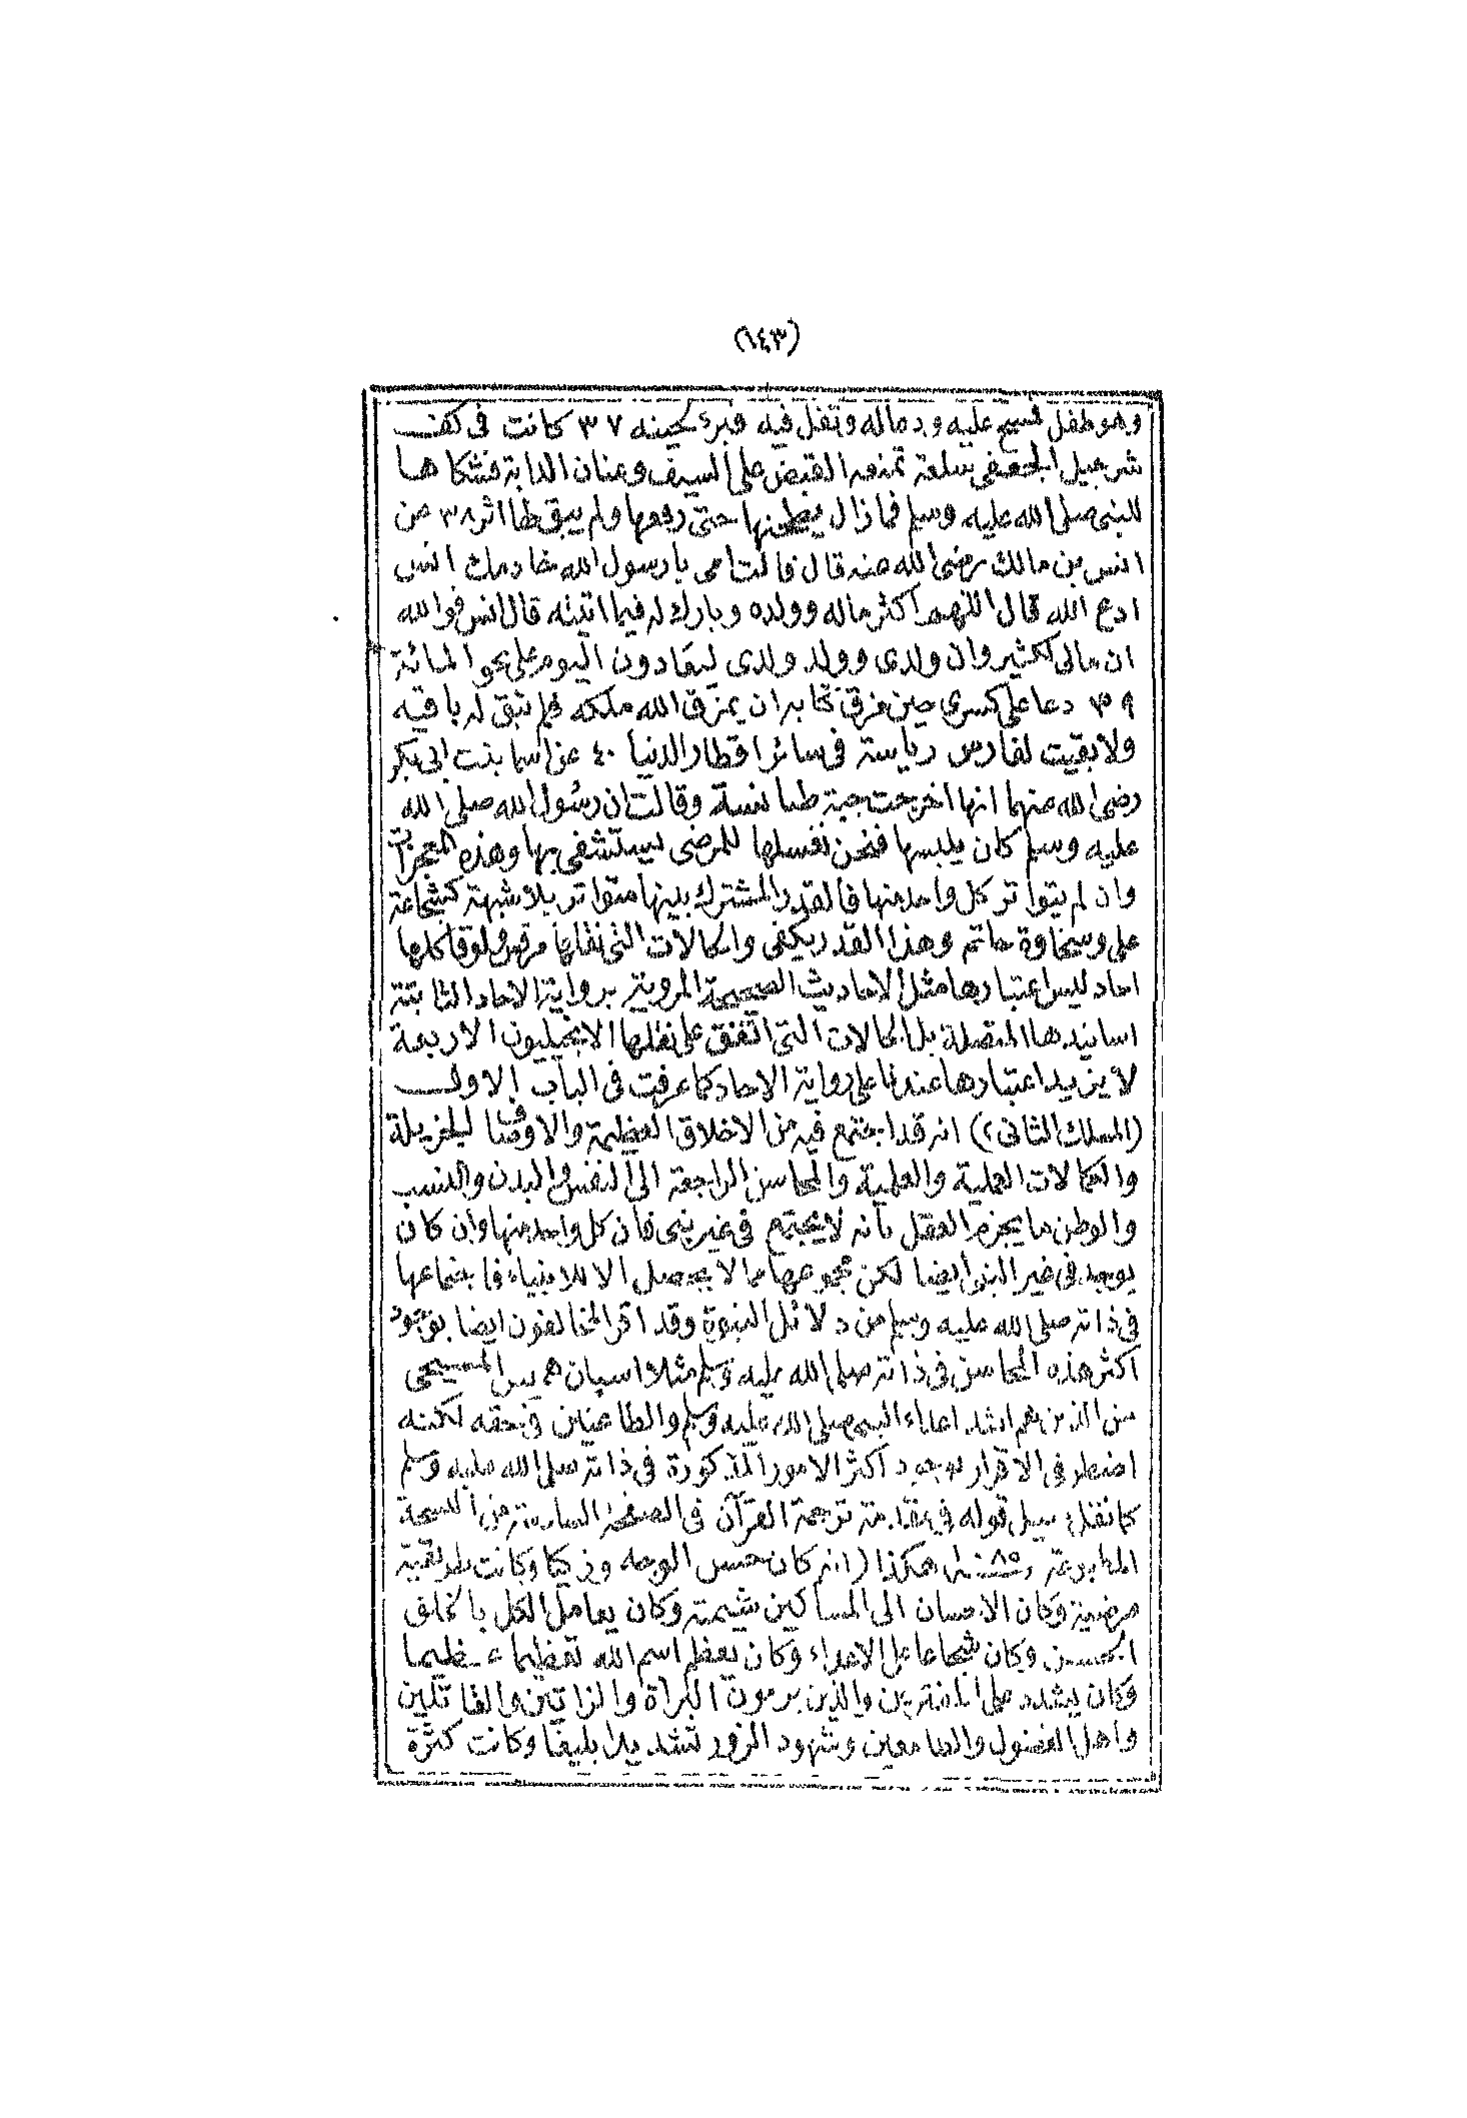 (١٤٣)
وهو طفل فمسح عليه ودعا له وتفل فيه فبرء لحينه ٣٧ كانت فى كف
شرحبيل الجعفى سلعة تمنعه القبض على السيف وعنان الدابة فشكاها
للنبى صلى الله عليه وسلم فما زال يطحنها حتى رفعها ولم يبق لها اثر ٣٨ عن
انس بن مالك رضى الله عنه قال قالت امى يا رسول الله خادمك انس
ادع الله قال اللهم اكثر ماله وولده وبارك له فيما اتيته قال انس فوالله
ان مالى لكثير وان ولدى وولد ولدى ليعادون اليوم على نحو المائة
٣٩ دعا على كسرى حين مزق كتابه ان يمزق الله ملكه فلم تبق له باقية
ولا بقيت لفارس رياسة فى سائر اقطار الدنيا ٤٠ عن اسما بنت ابى بكر
رضى الله عنهما انها اخرجت جبة طيالسة وقالت ان رسول الله صلى الله
عليه وسلم كان يلبسها فنحن نغسلها للمرضى يستشفى بها وهذه المعجزات
وان لم يتواتر كل واحد منها فالقدر المشترك بينها متواتر بلا شبهة كشجاعة
على وسخاوة حاتم وهذا القدر يكفى والحالات التى نقلها مرقس ولوقا كلها
احاد ليس اعتبارها مثل الاحاديث الصحيحة المروية برواية الاحاد الثابتة
اسانيدها المتصلة بل الحالات التى اتفق على نقلها الانجيليون الاربعة
لا يزيد اعتبارها عندنا على رواية الاحاد كما عرفت فى الباب الاول
(المسلك الثانى ٢) انه قد اجتمع فيه من الاخلاق العظيمة والاوصاف الجزيلة
والكمالات العملية والعلمية والمحاسن الراجعة الى النفس والبدن والنسب
والوطن ما يجزم العقل بانه لا يجتمع فى غير نبى فان كل واحد منها وان كان
يوجد فى غير النبى ايضا لكن مجموعها مما لا يحصل الا للانبياء فاجتماعها
فى ذاته صلى الله عليه وسلم من دلائل النبوة وقد اقر المخالفون ايضا بوجود
اكثر هذه المحاسن فى ذاته صلى الله عليه وسلم مثلا اسپان هميس المسيحى
من الذين هم اشد اعداء النبى صلى الله عليه وسلم والطاعنين فى حقه لكنه
اضطر فى الاقرار بوجود اكثر الامور المذكورة فى ذاته صلى الله عليه وسلم
كما نقل سيل قوله فى مقدمة ترجمة القرآن فى الصفحة السادسة من النسخة
المطبوعة هكذا (انه كان حسن الوجه وزكيا وكانت طريقته
مرضية وكان الاحسان الى المساكين شيمته وكان يعامل الكل بالخلق
الحسن وكان شجاعا على الاعداء وكان يعظم اسم الله تعظيما عظيما
وكان يشدد على المفترين والذين يرمون البراة والزانين والقاتلين
واهل الفضول والطامعين وشهود الزور تشديدا بليغا وكانت كثرة